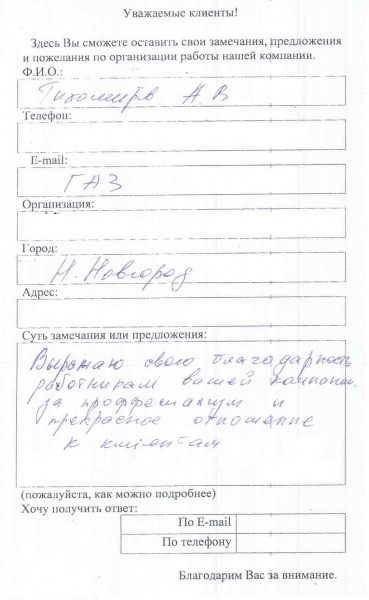 Уважаемые клиенты!
Здесь Вы сможете оставить свои замечания, предложения
и пожелания по организации работы нашей компании.
Ф.И.О.:
Тихомиров А В
Телефон:
E-mail:
ГАЗ
Организация:
Город:
Н. Новгород
Адрес:
Суть замечания или предложения:
Выражаю свою благадарность
работникам вашей компании
за профессианизм и
прекрасное отношение
к клиентам
(пожалуйста, как можно подробнее)
Хочу получить ответ:
По E-mail
По телефону
Благодарим Вас за внимание.